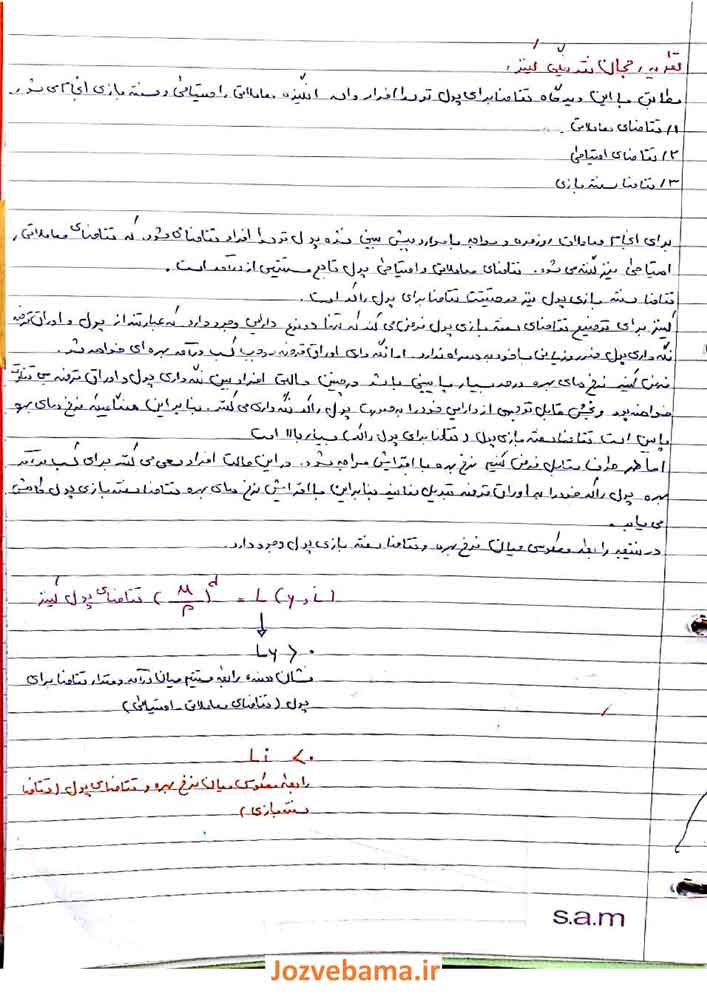 نظریه رجحان نقدینگی کینز:
مطابق با این دیدگاه تقاضا برای پول توسط افراد و با انگیزه معاملاتی، احتیاطی و سفته بازی انجام می شود.
۱/ تقاضای معاملاتی
۲/ تقاضای احتیاطی
۳/ تقاضا سفته بازی
برای انجام معاملات روزمره و مواجه با موارد پیش بینی نشده پول توسط افراد تقاضا می شود که تقاضای معاملاتی،
احتیاطی نیز گفته می شود. تقاضای معاملاتی و احتیاطی پول تابع مستقیمی از درآمد است.
تقاضا سفته بازی پول نیز در حقیقت تقاضا برای پول راکد است.
کینز برای توضیح تقاضای سفته بازی پول فرض می کند که تنها دو نوع دارایی وجود دارد که عبارتند از پول و اوراق قرضه
نگه داری پول ضرر و زیانی با خود به همراه ندارد. اما نگه داری اوراق قرضه موجب کسب درآمد بهره ای خواهد شد.
فرض کنید نرخ های بهره در حد بسیار پایینی باشد در چنین حالتی افراد بین نگه داری پول و اوراق قرضه بی تفاوت
خواهند بود و بخش قابل توجهی از دارایی خود را به صورت پول راکد نگه داری می کنند. بنابراین هنگامیکه نرخ های بهره
پایین است تقاضا سفته بازی پول (تقاضا برای پول راکد) بسیار بالا است
اما طرف مقابل فرض کنیم نرخ بهره با افزایش مواجه شود. در این حالت افراد سعی می کنند برای کسب درآمد
بهره پول راکد خود را به اوراق قرضه تبدیل نمایند بنابراین با افزایش نرخ های بهره تقاضا سفته بازی پول کاهش
می یابد.
در نتیجه رابطه معکوسی میان نرخ بهره و تقاضا سفته بازی پول وجود دارد.
تقاضای پول کینز (M/P)^d = L(y, i)
↓
Ly > ۰
نشان دهنده رابطه مستقیم میان درآمد و مقدار تقاضا برای
پول (تقاضای معاملاتی - احتیاطی)
Li < ۰
رابطه معکوس میان نرخ بهره و تقاضای پول (تقاضا
سفته بازی)
s.a.m
Jozvebama.ir